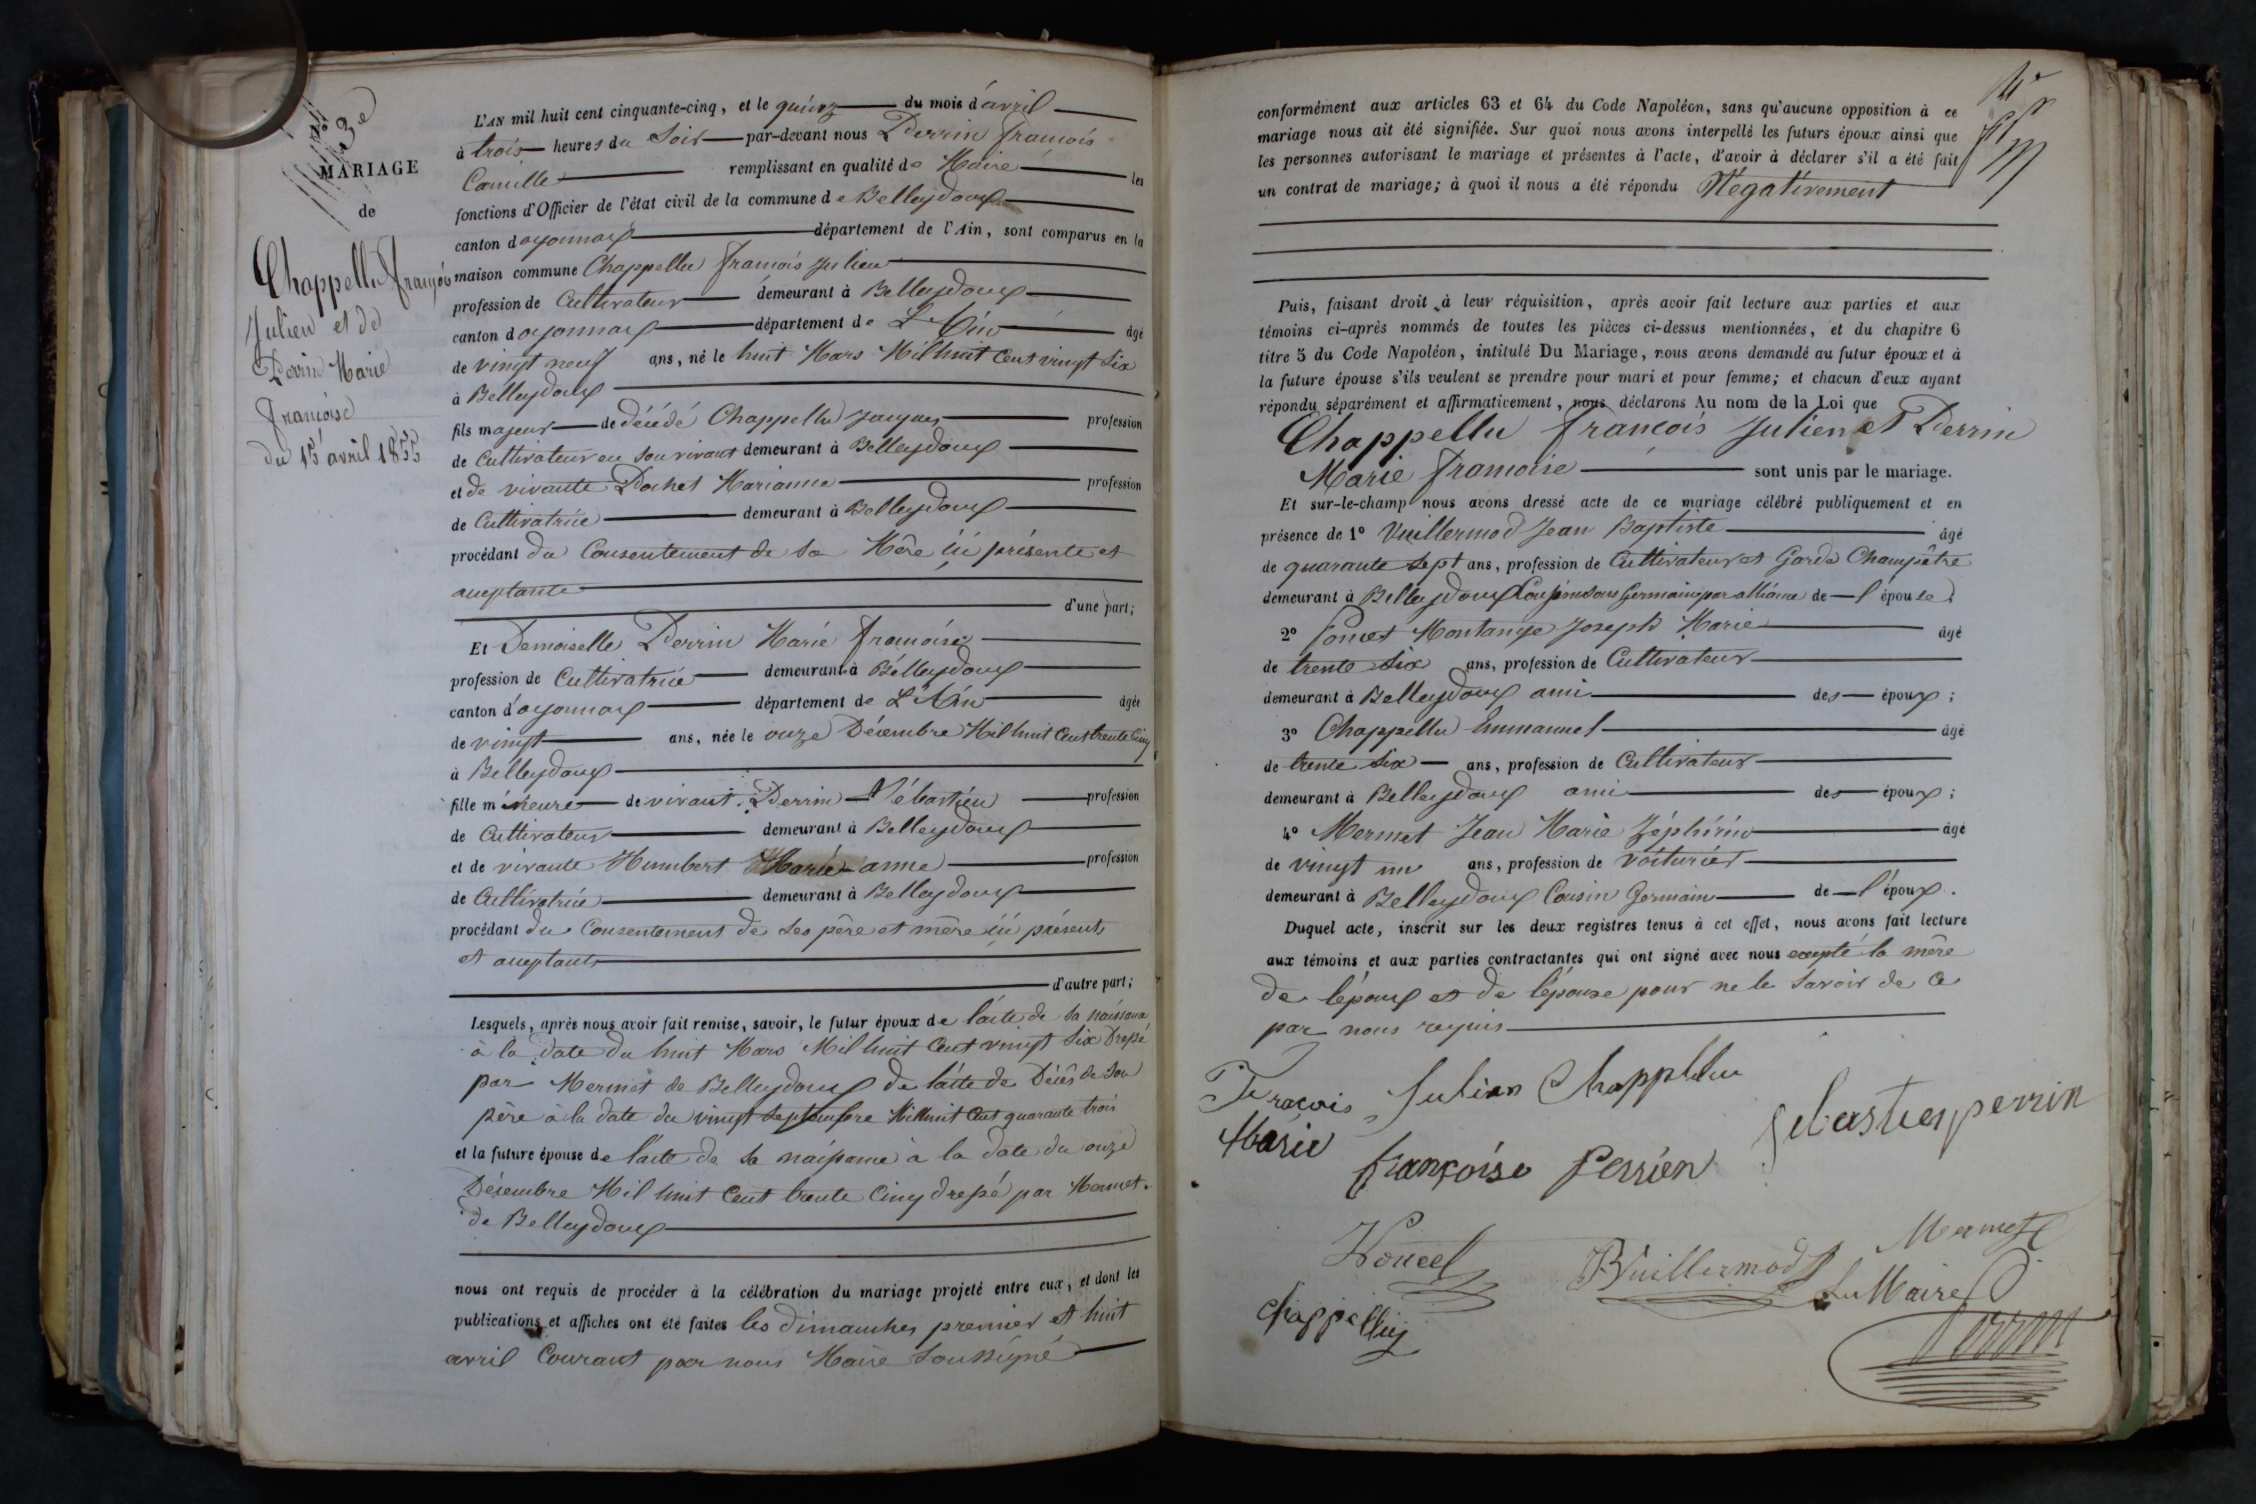 3e
MARIAGE
de
Chappellu françois
Julien et de
Perrin Marie
françoise
du 15 avril 1855
L'AN mil huit cent cinquante-cinq, et le quinze du mois d'avril
à trois heures du Soir par-devant nous Perrin françois
Camille remplissant en qualité de Maire les
fonctions d'Officier de l'état civil de la commune de Belleydoux
canton d'oyonnax département de l'Ain, sont comparus en la
maison commune Chappellu françois Julien
profession de Cultivateur demeurant à Belleydoux
canton d'oyonnax département de L'Ain âgé
de vingt neuf ans, né le huit Mars Mil huit Cent vingt Six
à Belleydoux
fils majeur de décédé Chappellu Jacques profession
de Cultivateur en Son vivant demeurant à Belleydoux
et de vivante Pochet Marianne profession
de Cultivatrice demeurant à Belleydoux
procédant du Consentement de Sa Mère ici présente et
acceptante
d'une part;
Et Demoiselle Perrin Marie françoise
profession de Cultivatrice demeurant à Belleydoux
canton d'oyonnax département de L'Ain âgée
de vingt ans, née le onze Décembre Mil huit Cent trente Cinq
à Belleydoux
fille mineure de vivant Perrin Sébastien profession
de Cultivateur demeurant à Belleydoux
et de vivante Humbert Marie anne profession
de Cultivatrice demeurant à Belleydoux
procédant du Consentement de Ses père et mère ici présents
et acceptants
d'autre part;
Lesquels, après nous avoir fait remise, savoir, le futur époux de l'acte de Sa naissance
à la Date du huit Mars Mil huit Cent vingt Six Dressé
par Mermet de Belleydoux de l'acte de Décès de Son
père à la date du vingt Septembre Mil huit Cent quarante trois
et la future épouse de l'acte de Sa naissance à la date du onze
Décembre Mil huit Cent trente Cinq dressé par Mermet
de Belleydoux
nous ont requis de procéder à la célébration du mariage projeté entre eux, et dont les
publications et affiches ont été faites les dimanches premier et huit
avril Courant par nous Maire Soussigné
conformément aux articles 63 et 64 du Code Napoléon, sans qu'aucune opposition à ce
mariage nous ait été signifiée. Sur quoi nous avons interpellé les futurs époux ainsi que
les personnes autorisant le mariage et présentes à l'acte, d'avoir à déclarer s'il a été fait
un contrat de mariage; à quoi il nous a été répondu Négativement
Puis, faisant droit à leur réquisition, après avoir fait lecture aux parties et aux
témoins ci-après nommés de toutes les pièces ci-dessus mentionnées, et du chapitre 6
titre 5 du Code Napoléon, intitulé Du Mariage, nous avons demandé au futur époux et à
la future épouse s'ils veulent se prendre pour mari et pour femme; et chacun d'eux ayant
répondu séparément et affirmativement, nous déclarons Au nom de la Loi que
Chappellu françois Julien et Perrin
Marie françoise sont unis par le mariage.
Et sur-le-champ nous avons dressé acte de ce mariage célébré publiquement et en
présence de 1° Vuillermod Jean Baptiste âgé
de quarante Sept ans, profession de Cultivateur et Garde Champêtre
demeurant à Belleydoux Cousin sous Germain par alliance de l'épouse;
2° Poncet Montange Joseph Marie âgé
de trente Six ans, profession de Cultivateur
demeurant à Belleydoux ami des époux;
3° Chappellu Emmanuel âgé
de trente Six ans, profession de Cultivateur
demeurant à Belleydoux ami des époux;
4° Mermet Jean Marie Zéphirin âgé
de vingt un ans, profession de voiturier
demeurant à Belleydoux Cousin Germain de l'époux.
Duquel acte, inscrit sur les deux registres tenus à cet effet, nous avons fait lecture
aux témoins et aux parties contractantes qui ont signé avec nous excepté la mère
de l'époux et de l'épouse pour ne le Savoir de ce
par nous requis
Fracois Julien Chappellu
Sebastien perrin
Marie françoise Perrien
Mermet
Poncet
BVuillermod
Le Maire
chappelluj
Perrin